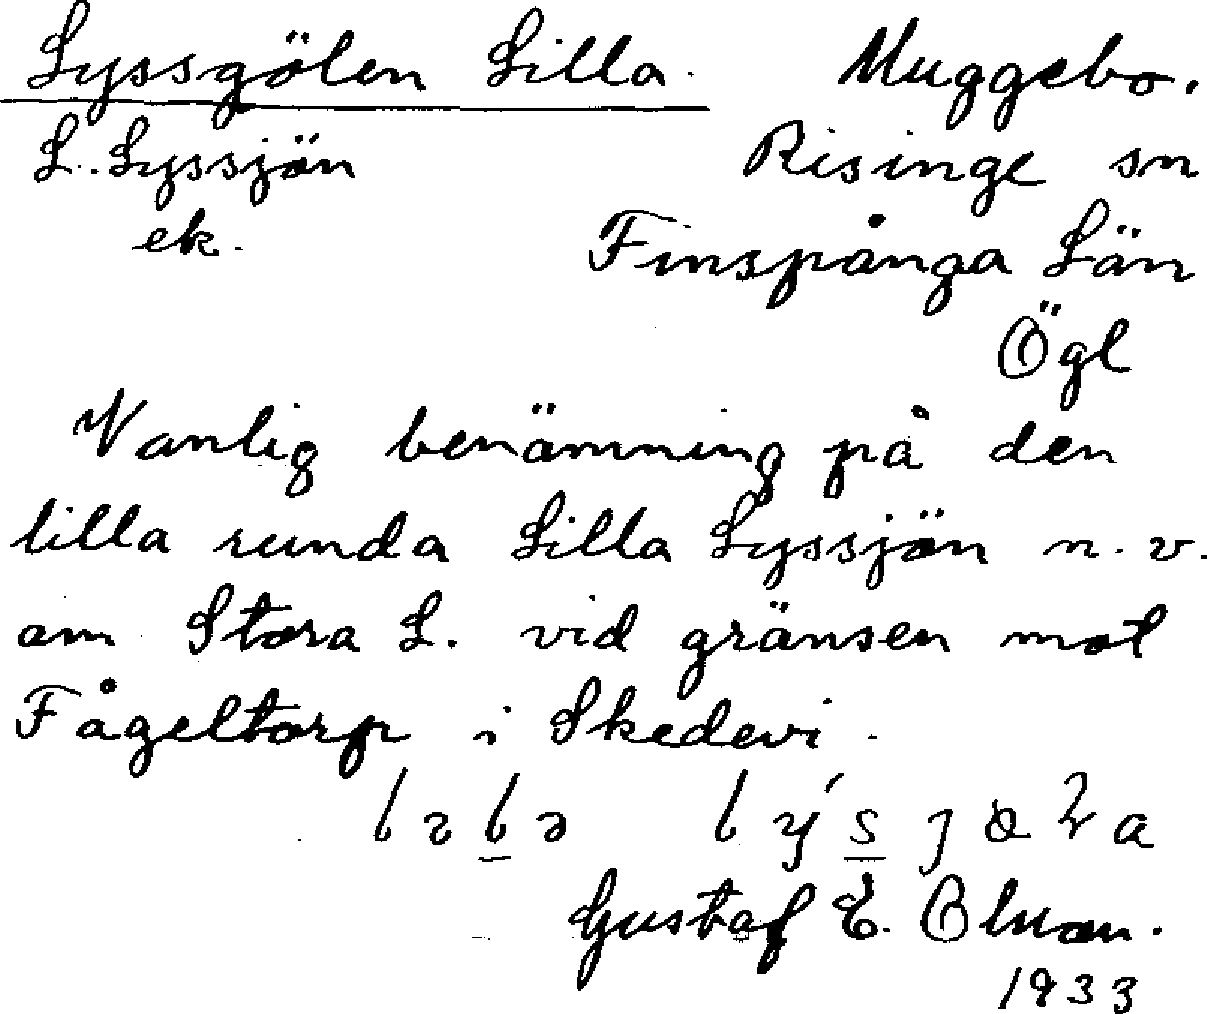 Lyssgölen Lilla. Muggebo.
L. Lyssjön Risinge sn
ek. Finspånga Län
Ögl
Vanlig benämning på den
lilla runda Lilla Lyssjön n.v.
om Stora L. vid gränsen mot
Fågeltorp i Skedevi.
Gustaf E.
1933